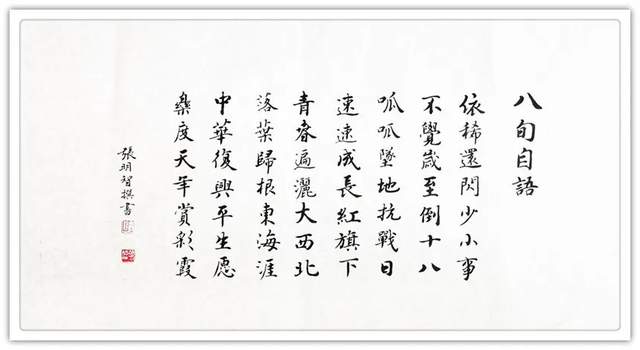 八旬自語
依稀還閃少小事
不覺歲至倒十八
呱呱墜地抗戰日
速速成長紅旗下
青春遍灑大西北
落葉歸根東海涯
中華復興平生愿
樂度天年賞彩霞
張明智撰書